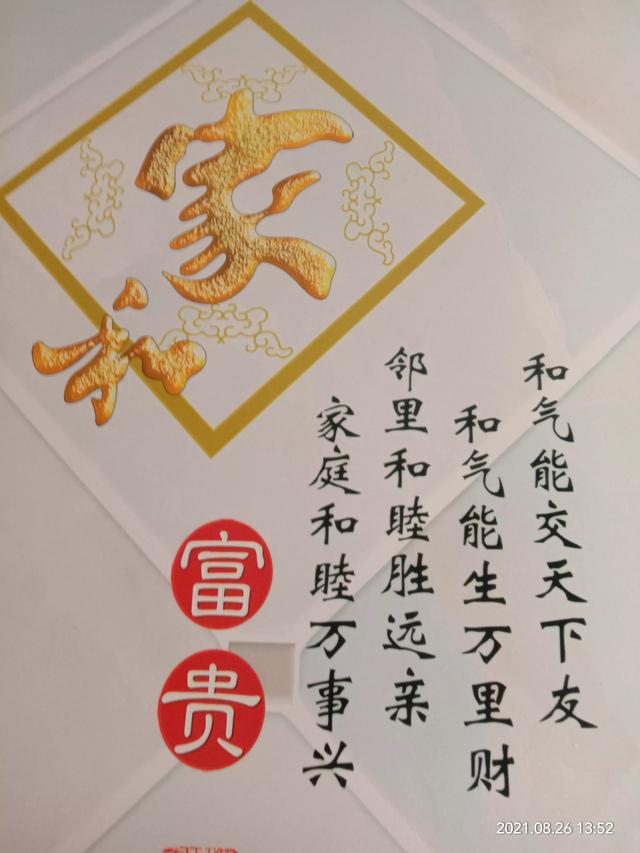 家和
富贵
和气能交天下友
和气能生万里财
邻里和睦胜远亲
家庭和睦万事兴
2021.08.26 13:52